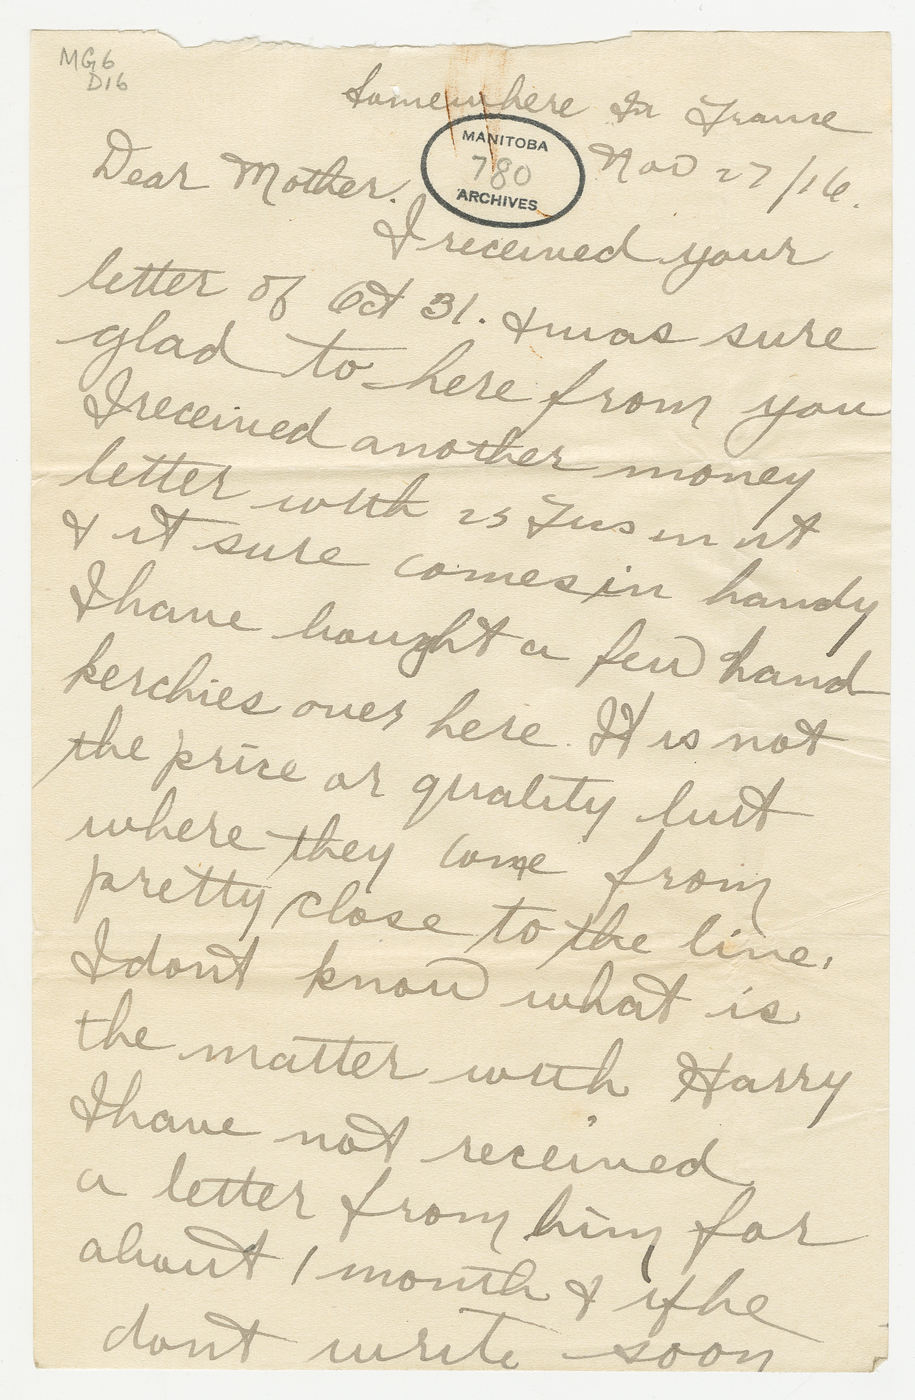 MG6
D16
Somewhere In France
MANITOBA
780
ARCHIVES
Nov 27/16.
Dear Mother.
I received your
letter of Oct 31. & was sure
glad to here from you
I received another money
letter with 25 in it
& it sure comes in handy
I have bought a few hand
kerchies over here. It is not
the price or quality but
where they come from
pretty close to the line.
I dont know what is
the matter with Harry
I have not received
a letter from him for
about 1 month & if he
dont write soon